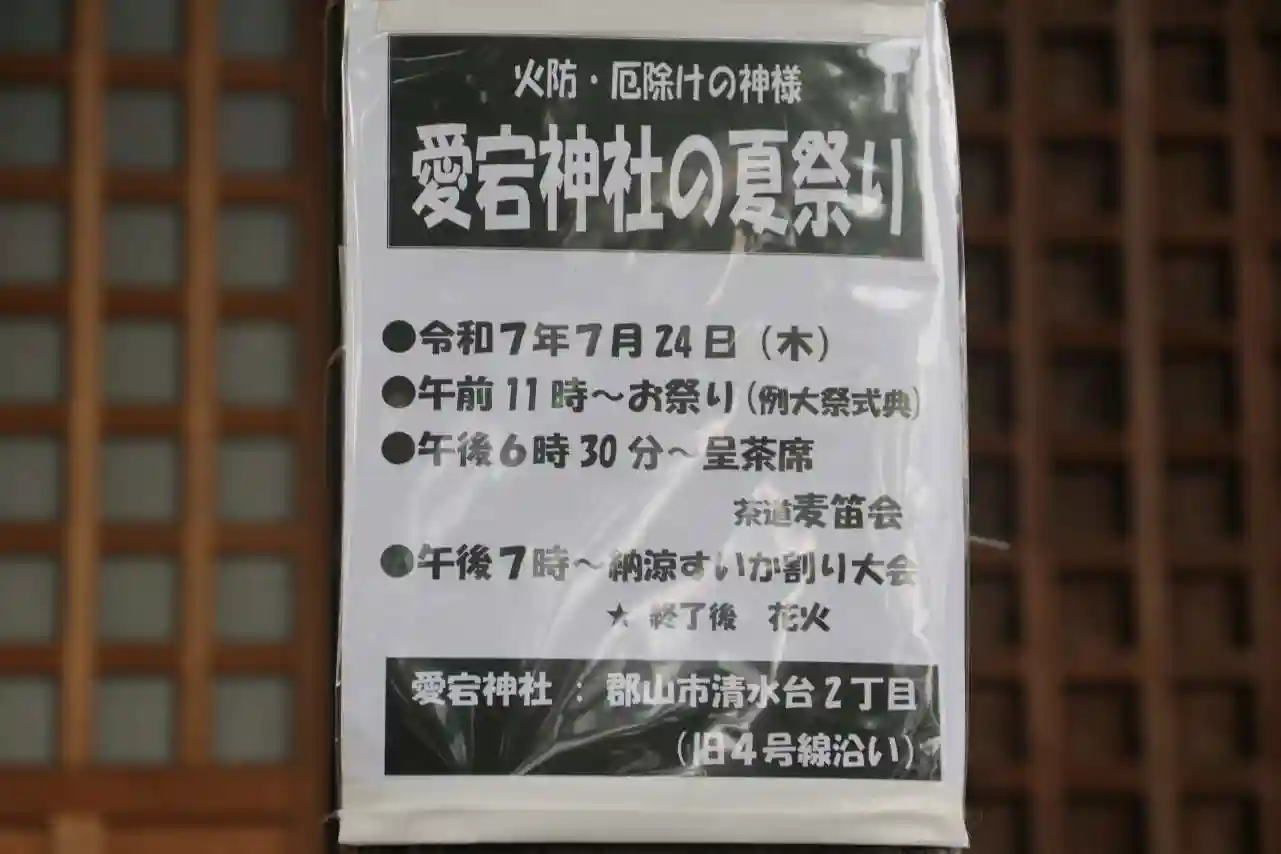 火防・厄除けの神様
愛宕神社の夏祭り
●令和7年7月24日（木）
●午前11時～お祭り（例大祭式典）
●午後6時30分～呈茶席
茶道麦笛会
●午後7時～納涼すいか割り大会
★ 終了後　花火
愛宕神社：郡山市清水台2丁目
（旧4号線沿い）